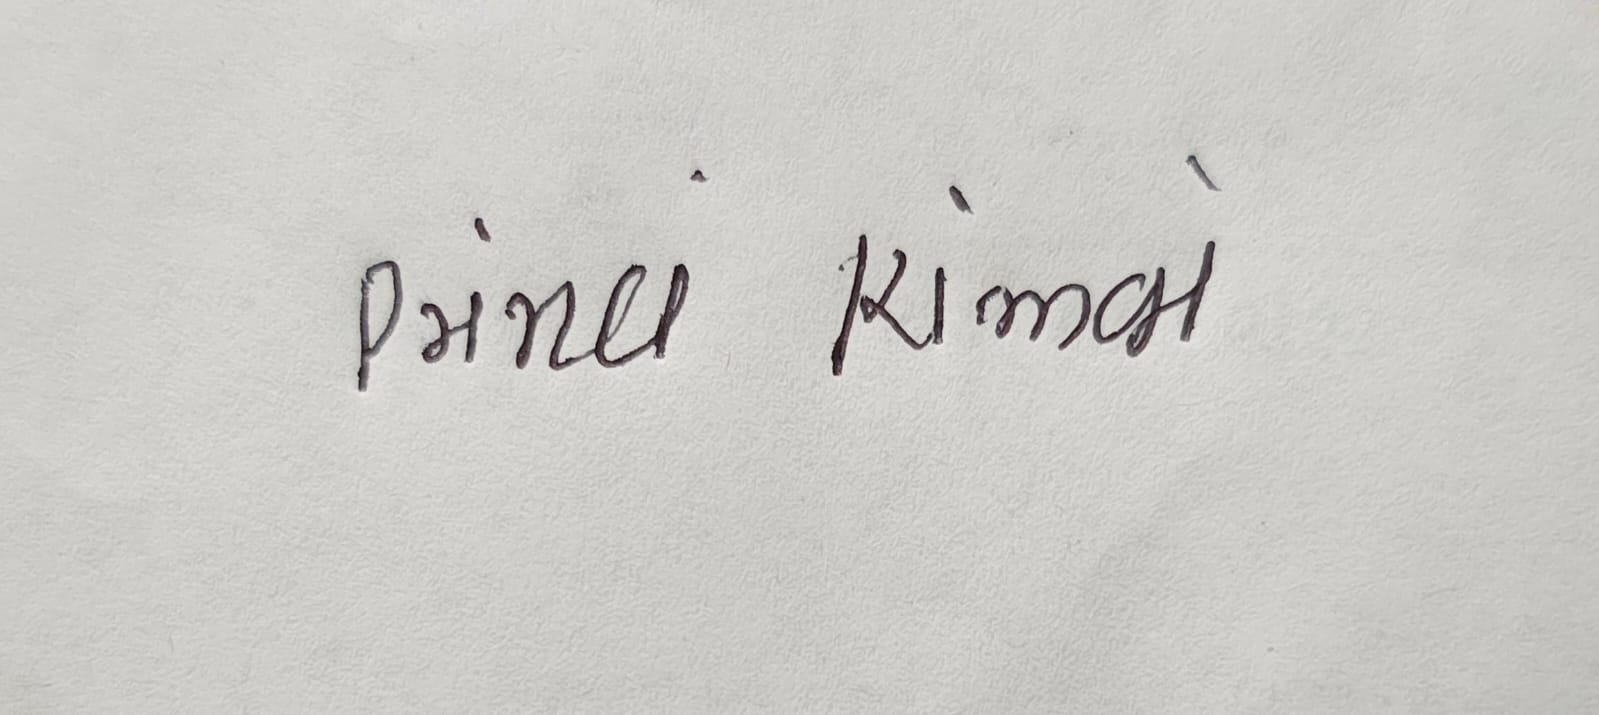 Princi Kimai